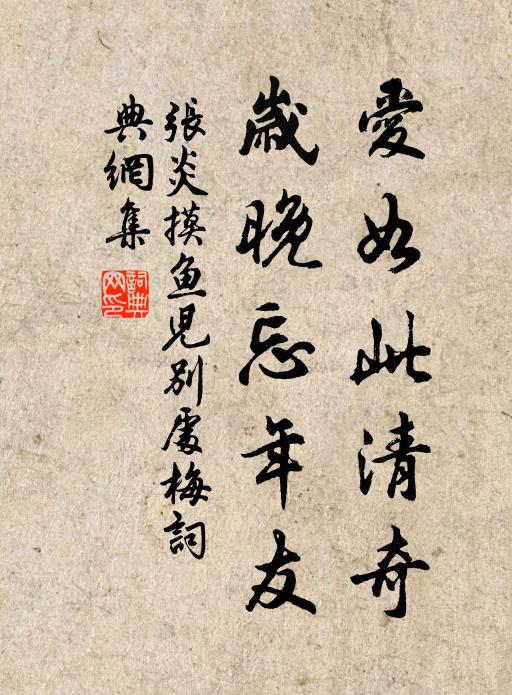 愛如此清奇
歲晚忘年友
張炎摸魚兒別處梅詞
典網集
詞典網印